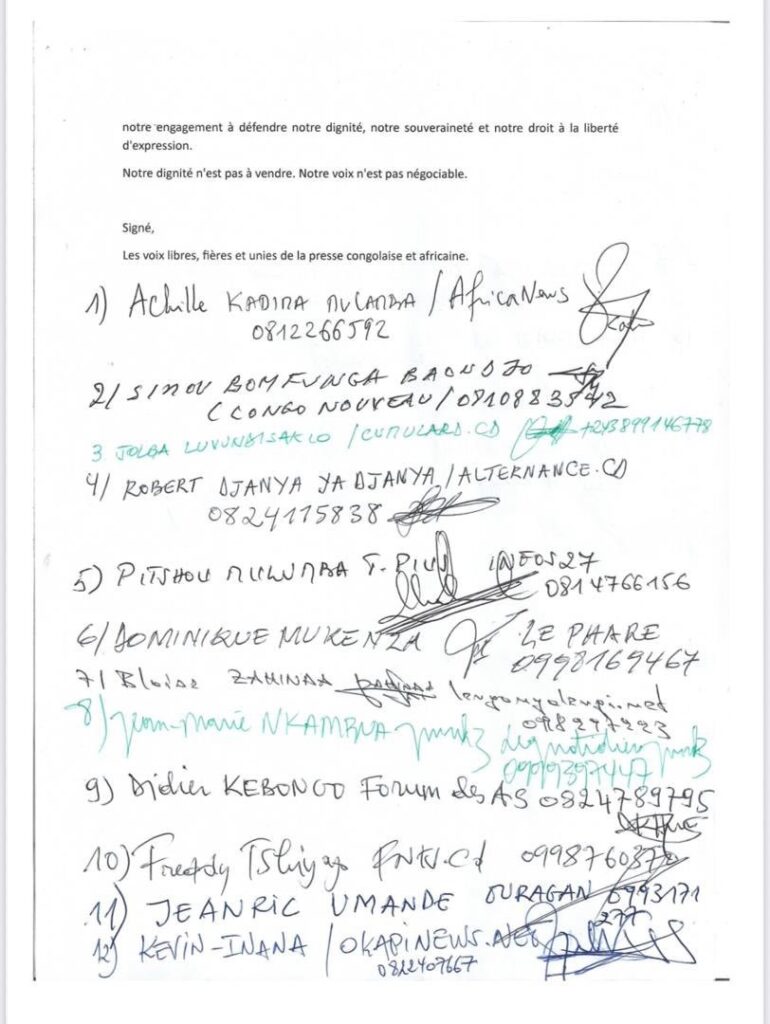 notre engagement à défendre notre dignité, notre souveraineté et notre droit à la liberté
d'expression.
Notre dignité n'est pas à vendre. Notre voix n'est pas négociable.
Signé,
Les voix libres, fières et unies de la presse congolaise et africaine.
1) Achille KADIMA MULAMBA / AfricaNews
0812266592
2/ SIMON BOMFUNGA BAONDJO
(CONGO NOUVEAU/
3 JOLGA LUVUNDISAKIO /CUMULARD.CD +243899146778
4/ ROBERT DJANYA YA DJANYA /ALTERNANCE.CD
0824115838
5) PITSHOU MULUMBA T. PIUS INFOS27
0814766156
6/ DOMINIQUE MUKENZA LE PHARE
0998169467
7/ Blaise
8) Jean-Marie NKAMBUA
9) Didier KEBONGO Forum des AS 0824789795
10) Freddy
11) JEANRIC UMANDE OURAGAN 0993171
277
12) KEVIN-INANA / OKAPINEWS.NET
0822407667